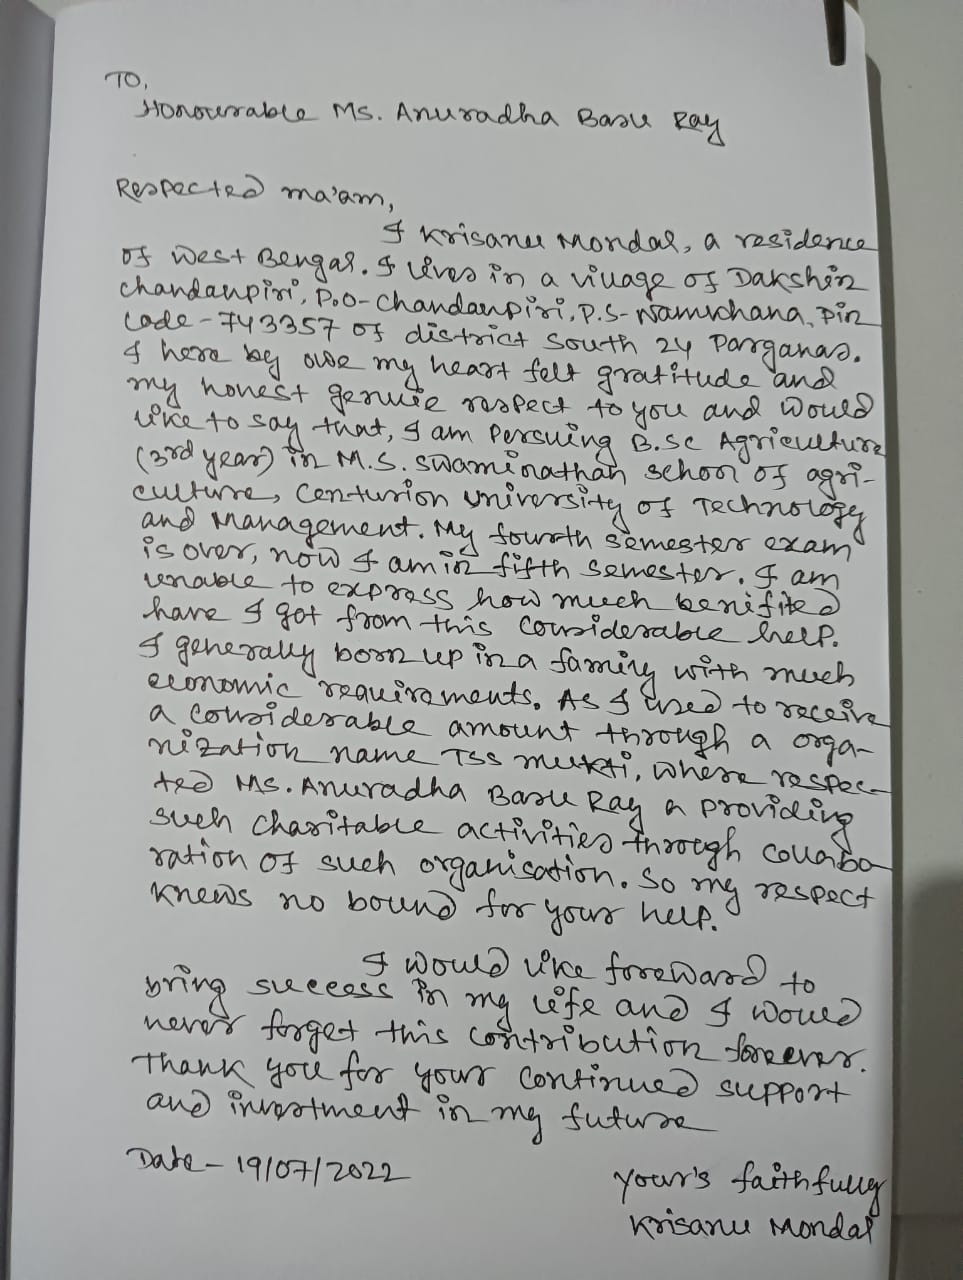 TO,
Honourable Ms. Anuradha Basu Ray
Respected ma'am,
I Krisanu Mondal, a residence
of West Bengal. I lives in a village of Dakshin
chandanpiri, P.O-Chandanpiri, P.S-Namkhana, Pin
Code-743357 of district South 24 Parganas.
I here by owe my heart felt gratitude and
my honest genuie respect to you and would
like to say that, I am Persuing B.Sc Agriculture
(3rd year) in M.S. Swaminathan school of agri-
culture, Centurion university of Technology
and Management. My fourth semester exam
is over, now I am in fifth semester. I am
unable to express how much benifited
have I got from this considerable help.
I generally born up in a family with much
economic requirements. As I used to receive
a considerable amount through a orga-
nization name TSS mukti, where respec-
ted Ms. Anuradha Basu Ray a providing
such charitable activities through collabo
ration of such organisation. So my respect
knews no bound for your help.
I would like foreward to
bring success in my life and I would
never forget this contribution forever.
Thank you for your continued support
and investment in my future
Date - 19/07/2022
your's faithfully
Krisanu Mondal